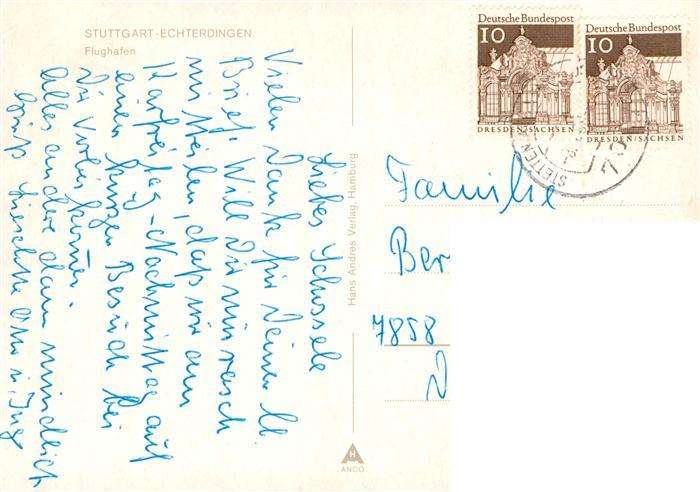 STUTTGART-ECHTERDINGEN
Flughafen
Liebes Schossele
Vielen Dank für Deinen lb
Brief. Will Dir nun rasch
mitteilen, daß wir am
Karfreitag-Nachmittag auf
einen kurzen Besuch bei
Dir vorbeikommen.
Alles andere dann mündlich
Gruß
Hans Andres Verlag, Hamburg
ANCO
Deutsche Bundespost
10
DRESDEN/SACHSEN
Deutsche Bundespost
10
DRESDEN/SACHSEN
STETTEN
Familie
Ber
7858